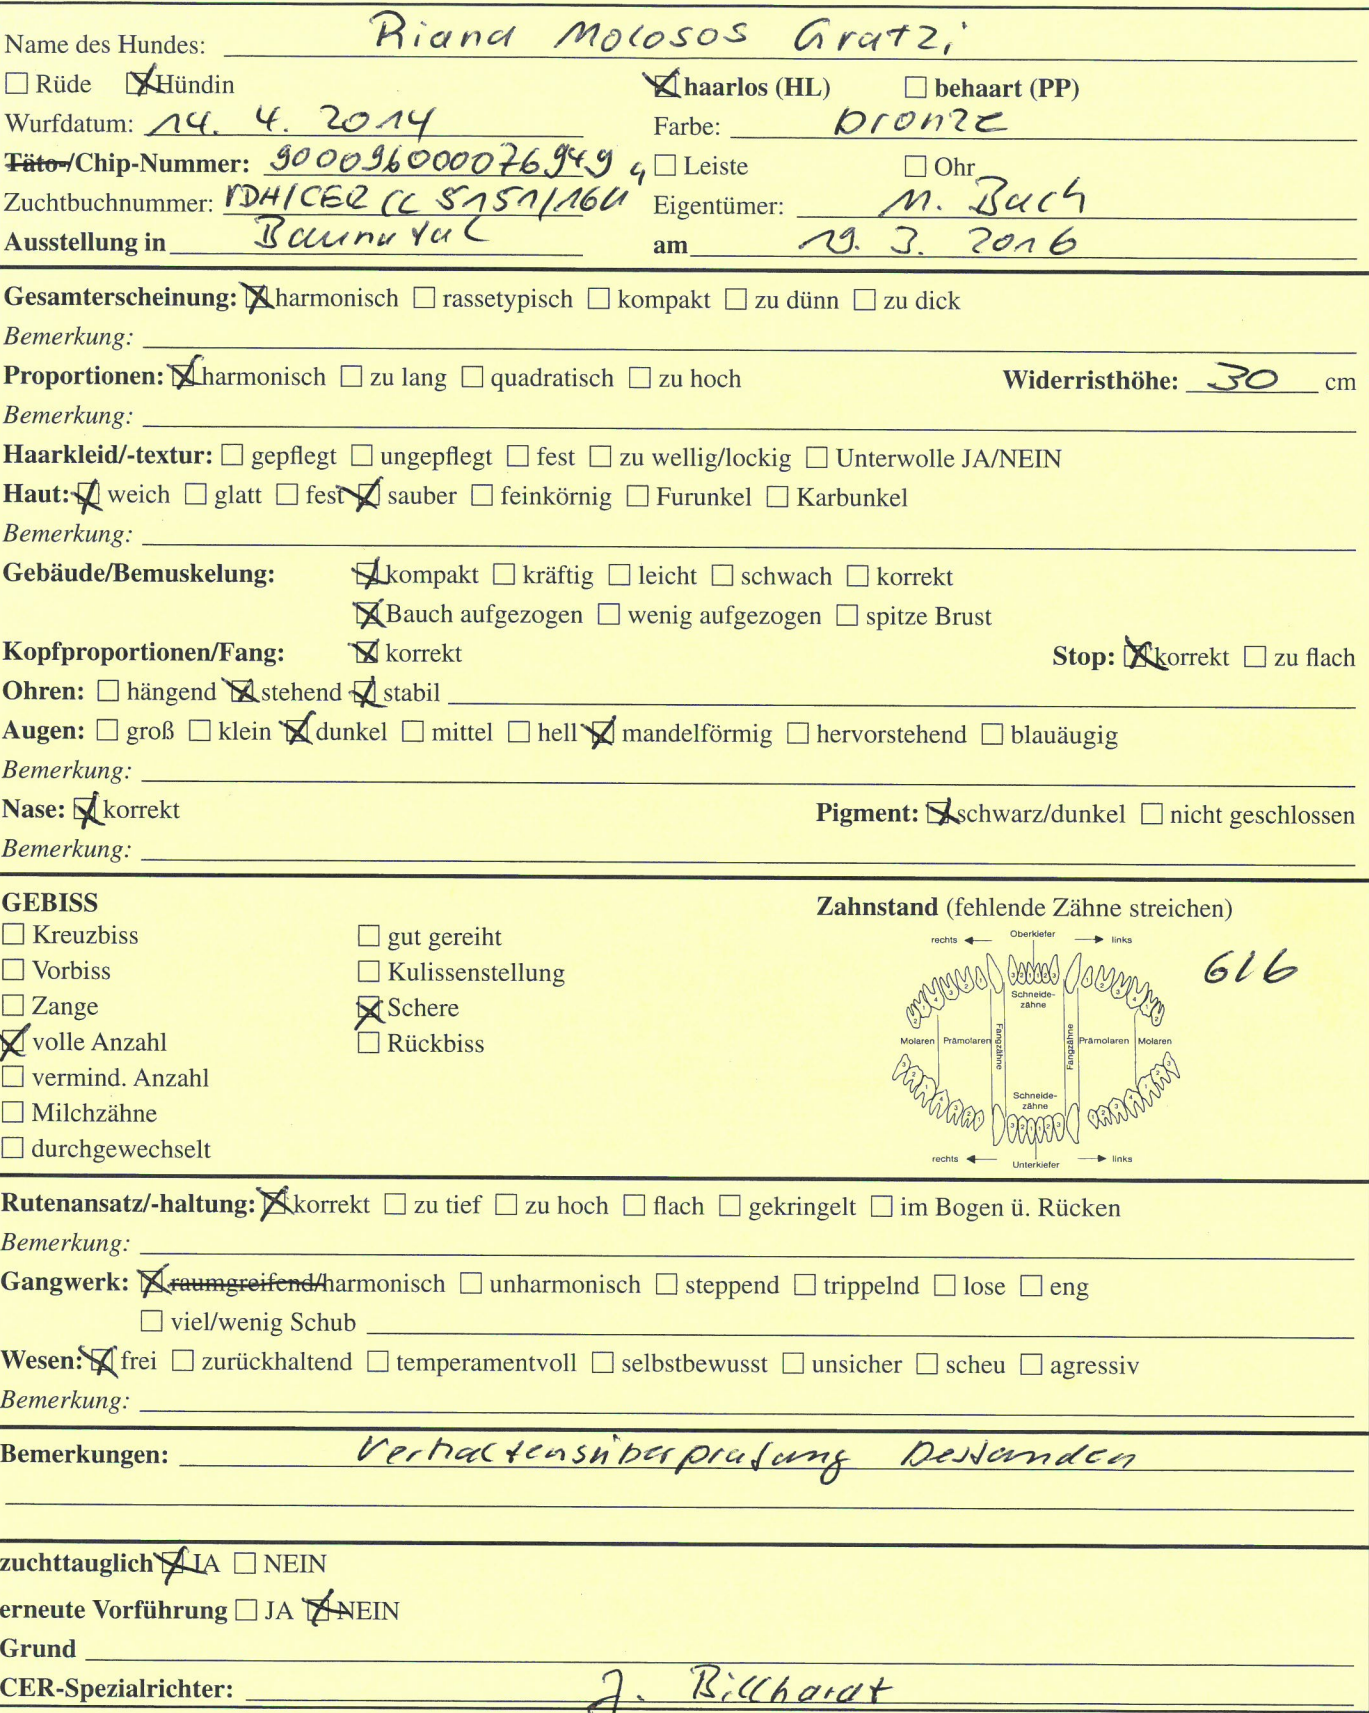 Name des Hundes: Riana Molosos Gratzi
☐ Rüde ☒ Hündin ☒ haarlos (HL) ☐ behaart (PP)
Wurfdatum: 14. 4. 2014 Farbe: bronze
Täto-/Chip-Nummer: ☐ Leiste ☐ Ohr
Zuchtbuchnummer: VDH/CER CC 5151/16U Eigentümer: M. Bach
Ausstellung in Baunatal am 19. 3. 2016
Gesamterscheinung: ☒ harmonisch ☐ rassetypisch ☐ kompakt ☐ zu dünn ☐ zu dick
Bemerkung:
Proportionen: ☒ harmonisch ☐ zu lang ☐ quadratisch ☐ zu hoch Widerristhöhe: 30 cm
Bemerkung:
Haarkleid/-textur: ☐ gepflegt ☐ ungepflegt ☐ fest ☐ zu wellig/lockig ☐ Unterwolle JA/NEIN
Haut: ☒ weich ☐ glatt ☐ fest ☒ sauber ☐ feinkörnig ☐ Furunkel ☐ Karbunkel
Bemerkung:
Gebäude/Bemuskelung: ☒ kompakt ☐ kräftig ☐ leicht ☐ schwach ☐ korrekt
☒ Bauch aufgezogen ☐ wenig aufgezogen ☐ spitze Brust
Kopfproportionen/Fang: ☒ korrekt Stop: ☒ korrekt ☐ zu flach
Ohren: ☐ hängend ☒ stehend ☒ stabil
Augen: ☐ groß ☐ klein ☒ dunkel ☐ mittel ☐ hell ☒ mandelförmig ☐ hervorstehend ☐ blauäugig
Bemerkung:
Nase: ☒ korrekt Pigment: ☒ schwarz/dunkel ☐ nicht geschlossen
Bemerkung:
GEBISS
☐ Kreuzbiss ☐ gut gereiht
☐ Vorbiss ☐ Kulissenstellung
☐ Zange ☒ Schere
☒ volle Anzahl ☐ Rückbiss
☐ vermind. Anzahl
☐ Milchzähne
☐ durchgewechselt
Zahnstand (fehlende Zähne streichen)
rechts Oberkiefer links
6/6
Schneide-
zähne
Molaren Prämolaren Fangzähne Fangzähne Prämolaren Molaren
Schneide-
zähne
rechts Unterkiefer links
Rutenansatz/-haltung: ☒ korrekt ☐ zu tief ☐ zu hoch ☐ flach ☐ gekringelt ☐ im Bogen ü. Rücken
Bemerkung:
Gangwerk: ☒ raumgreifend/harmonisch ☐ unharmonisch ☐ steppend ☐ trippelnd ☐ lose ☐ eng
☐ viel/wenig Schub
Wesen: ☒ frei ☐ zurückhaltend ☐ temperamentvoll ☐ selbstbewusst ☐ unsicher ☐ scheu ☐ agressiv
Bemerkung:
Bemerkungen: Verhaltensüberprüfung bestanden
zuchttauglich ☒ JA ☐ NEIN
erneute Vorführung ☐ JA ☒ NEIN
Grund
CER-Spezialrichter: J. Billhardt